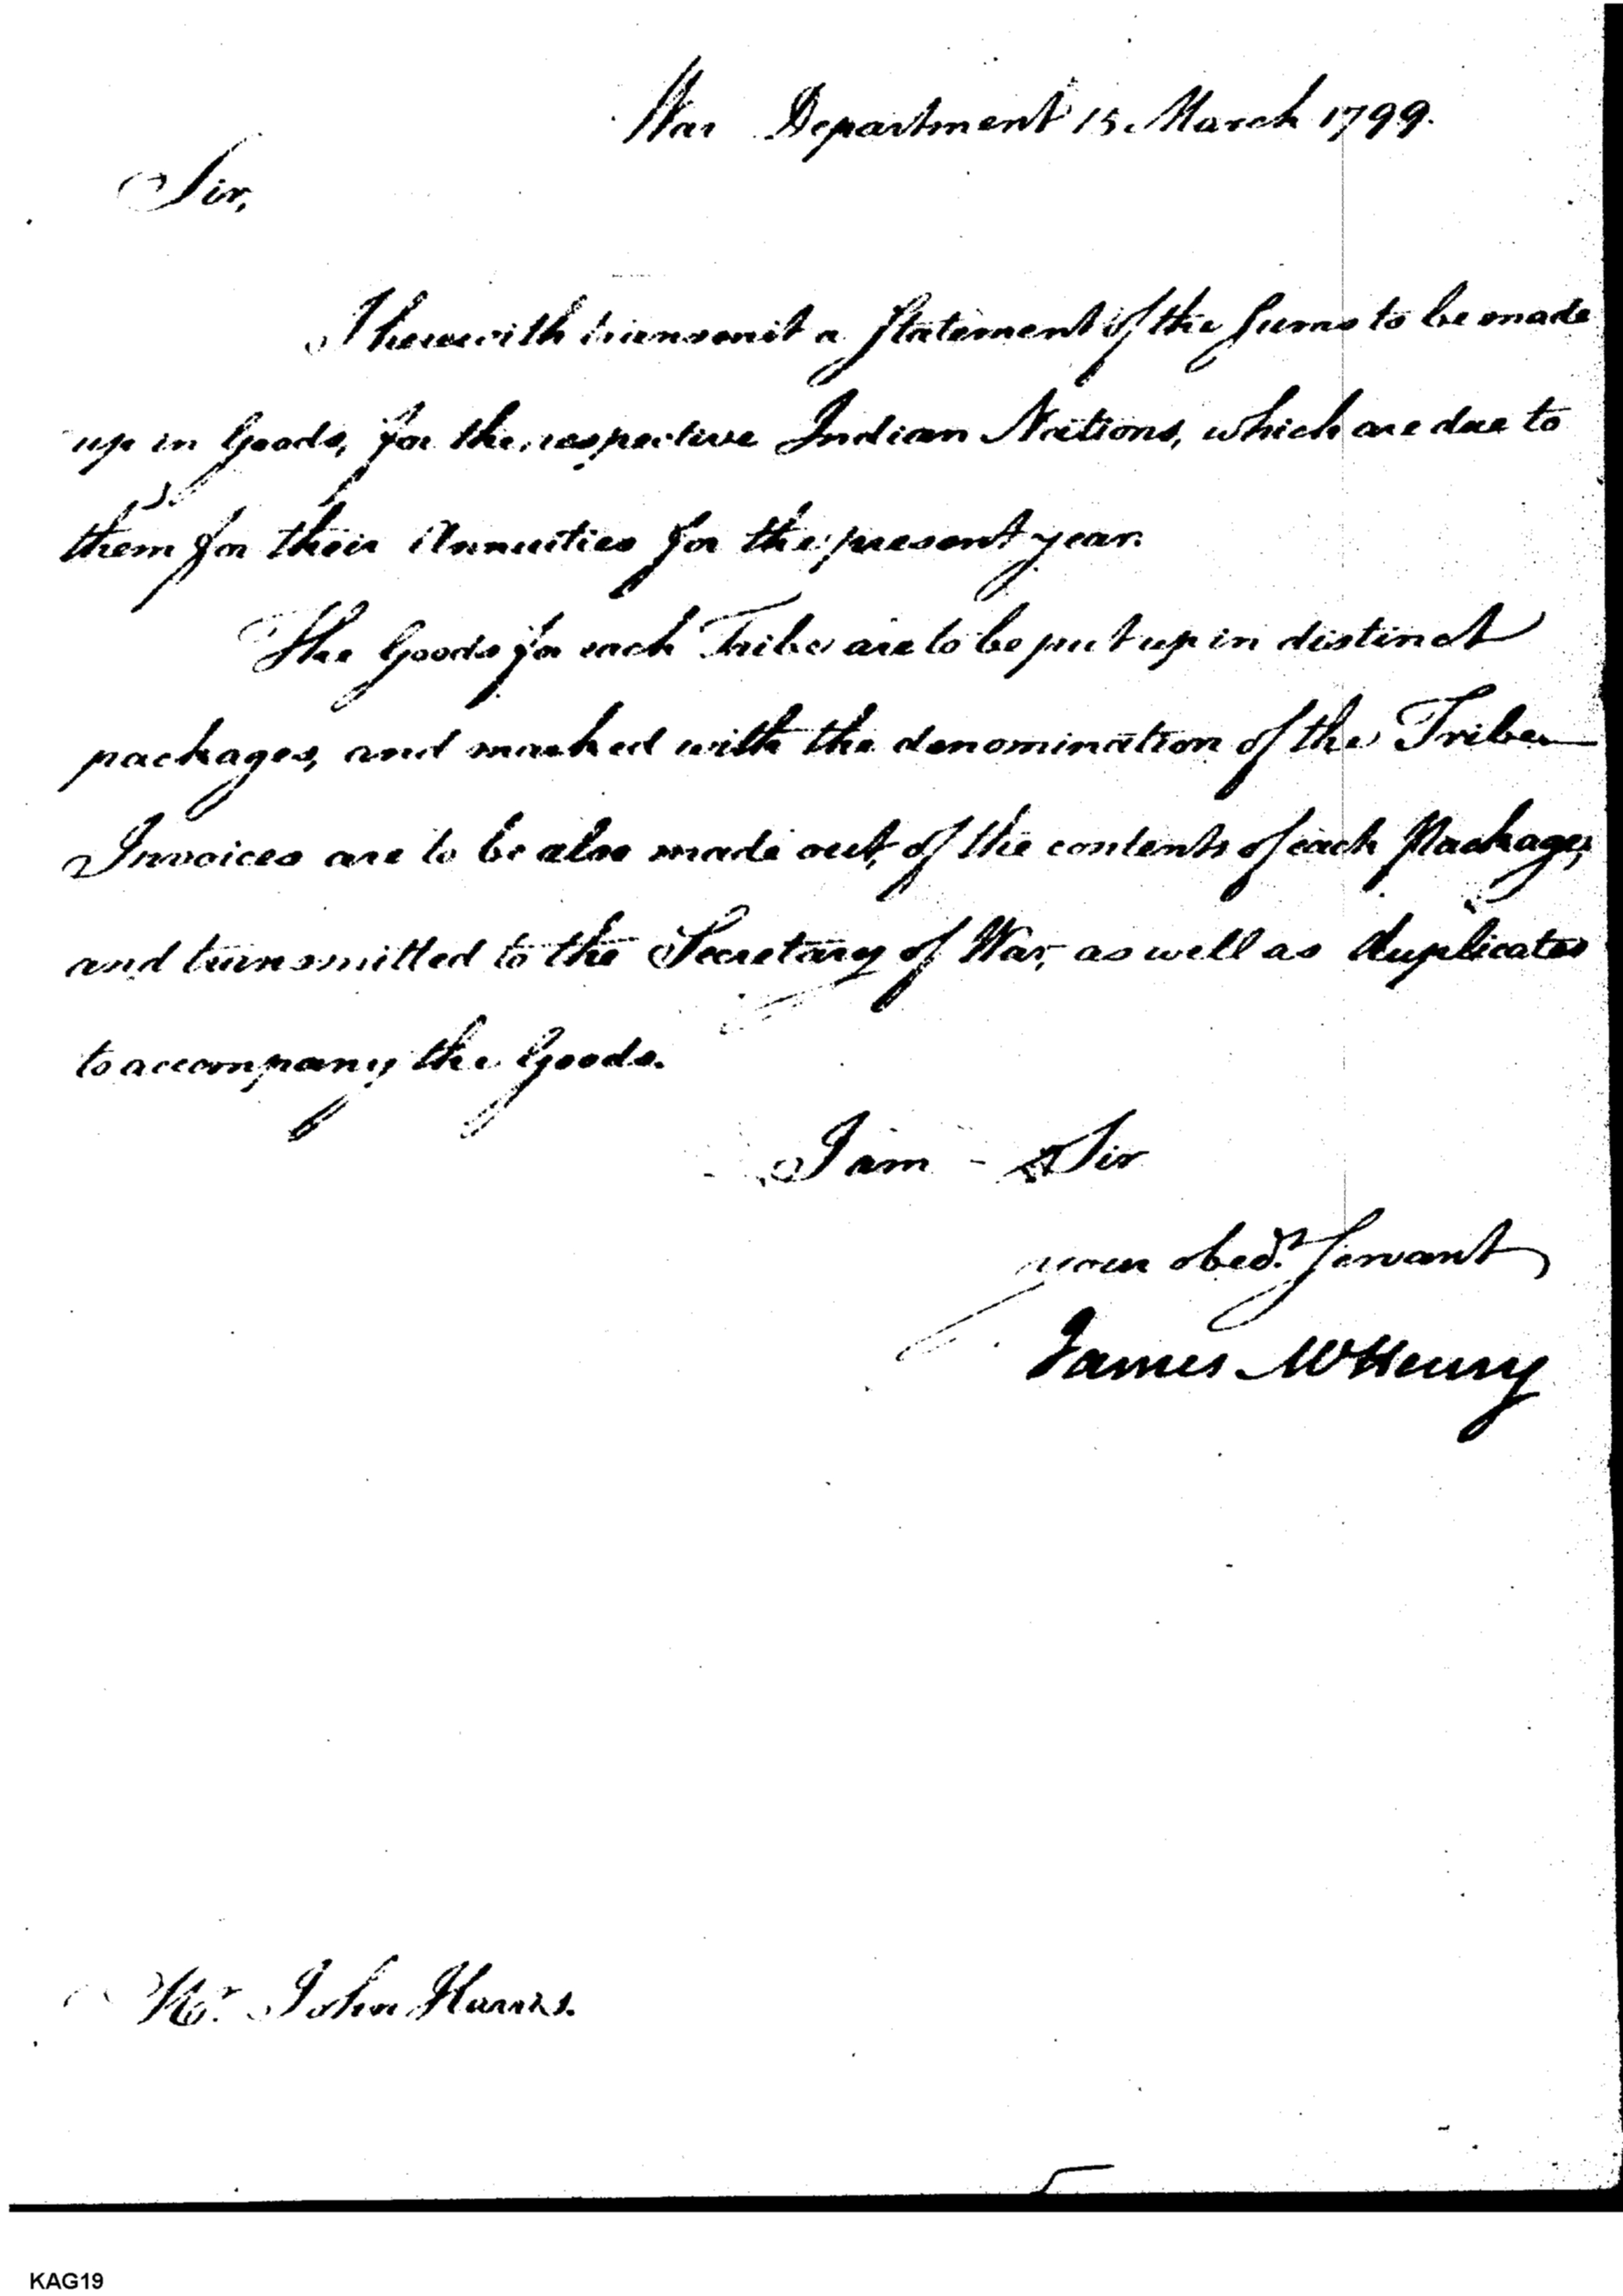 War Department 15 March 1799.
Sir,
I herewith transmit a Statement of the Sums to be made
up in Goods, for the respective Indian Nations, which are due to
them for their Annuities for the present year.
The Goods for each Tribe are to be put up in distinct
packages, and marked with the denomination of the Tribe
Invoices are to be also made out, of the contents of each Package,
and transmitted to the Secretary of War, as well as duplicates
to accompany the Goods.
I am - Sir
your obedt. Servant
James McHenry
Mr. John Harris.
KAG19